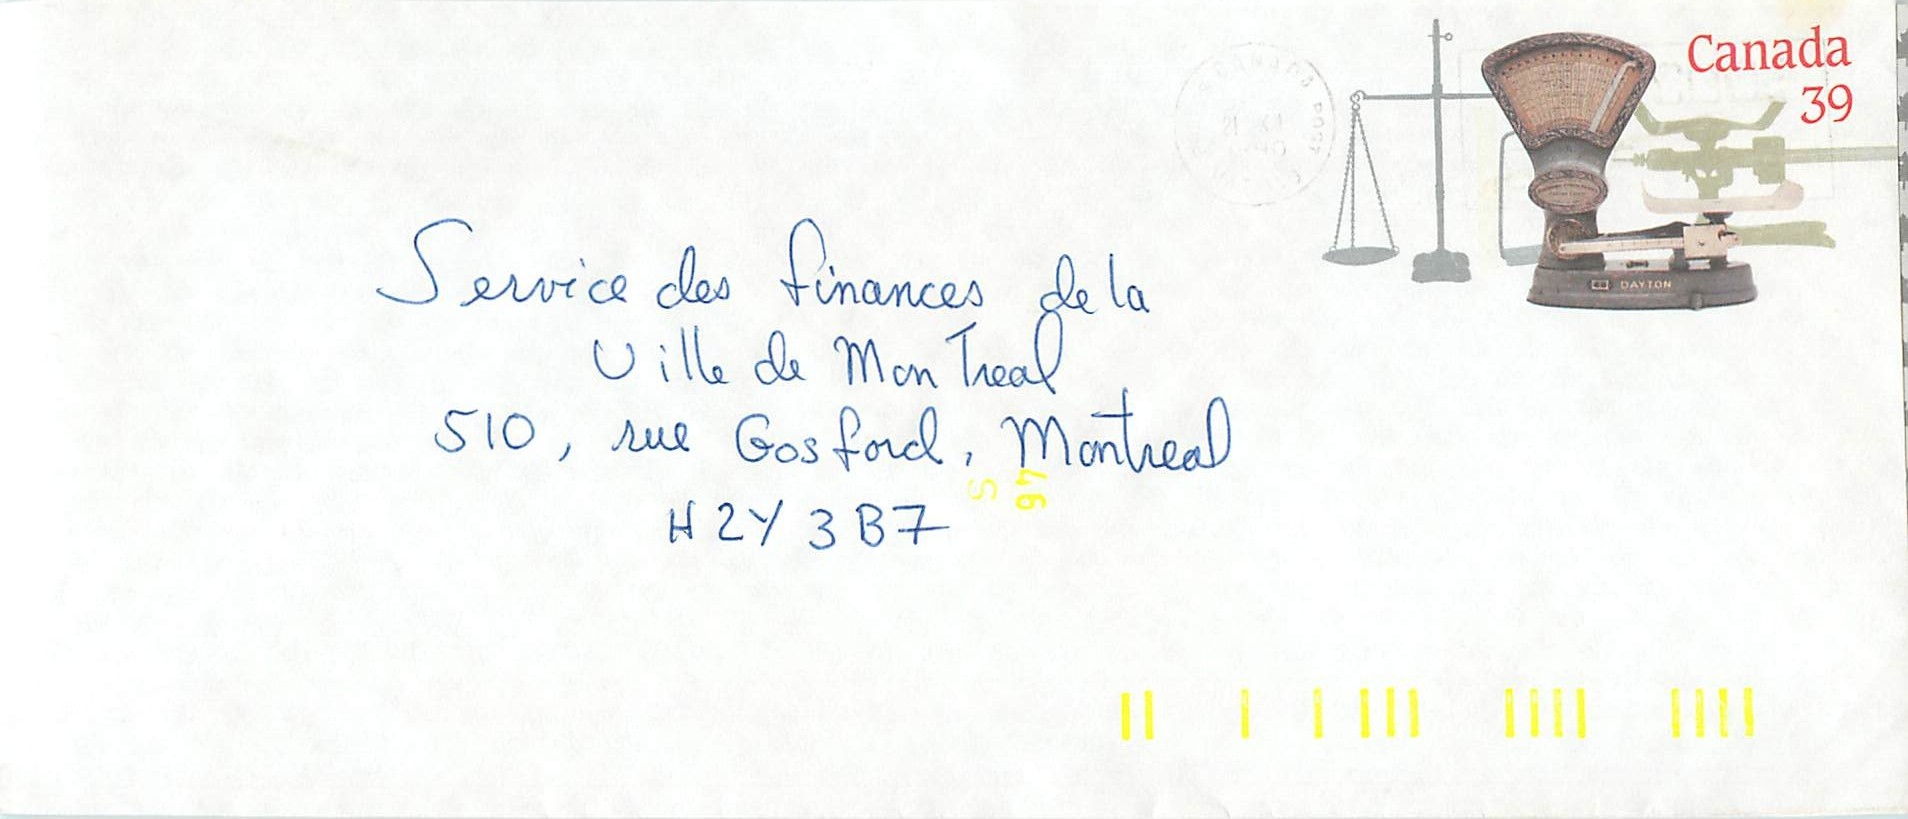 Canada
39
CANADA POST
DAYTON
Service des finances de la
Ville de Montreal
510, rue Gosford, Montreal
H2Y 3B7
S
97